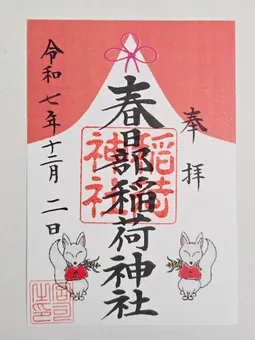 奉拝
春日部稲荷神社
稲荷神社
令和七年十二月二日